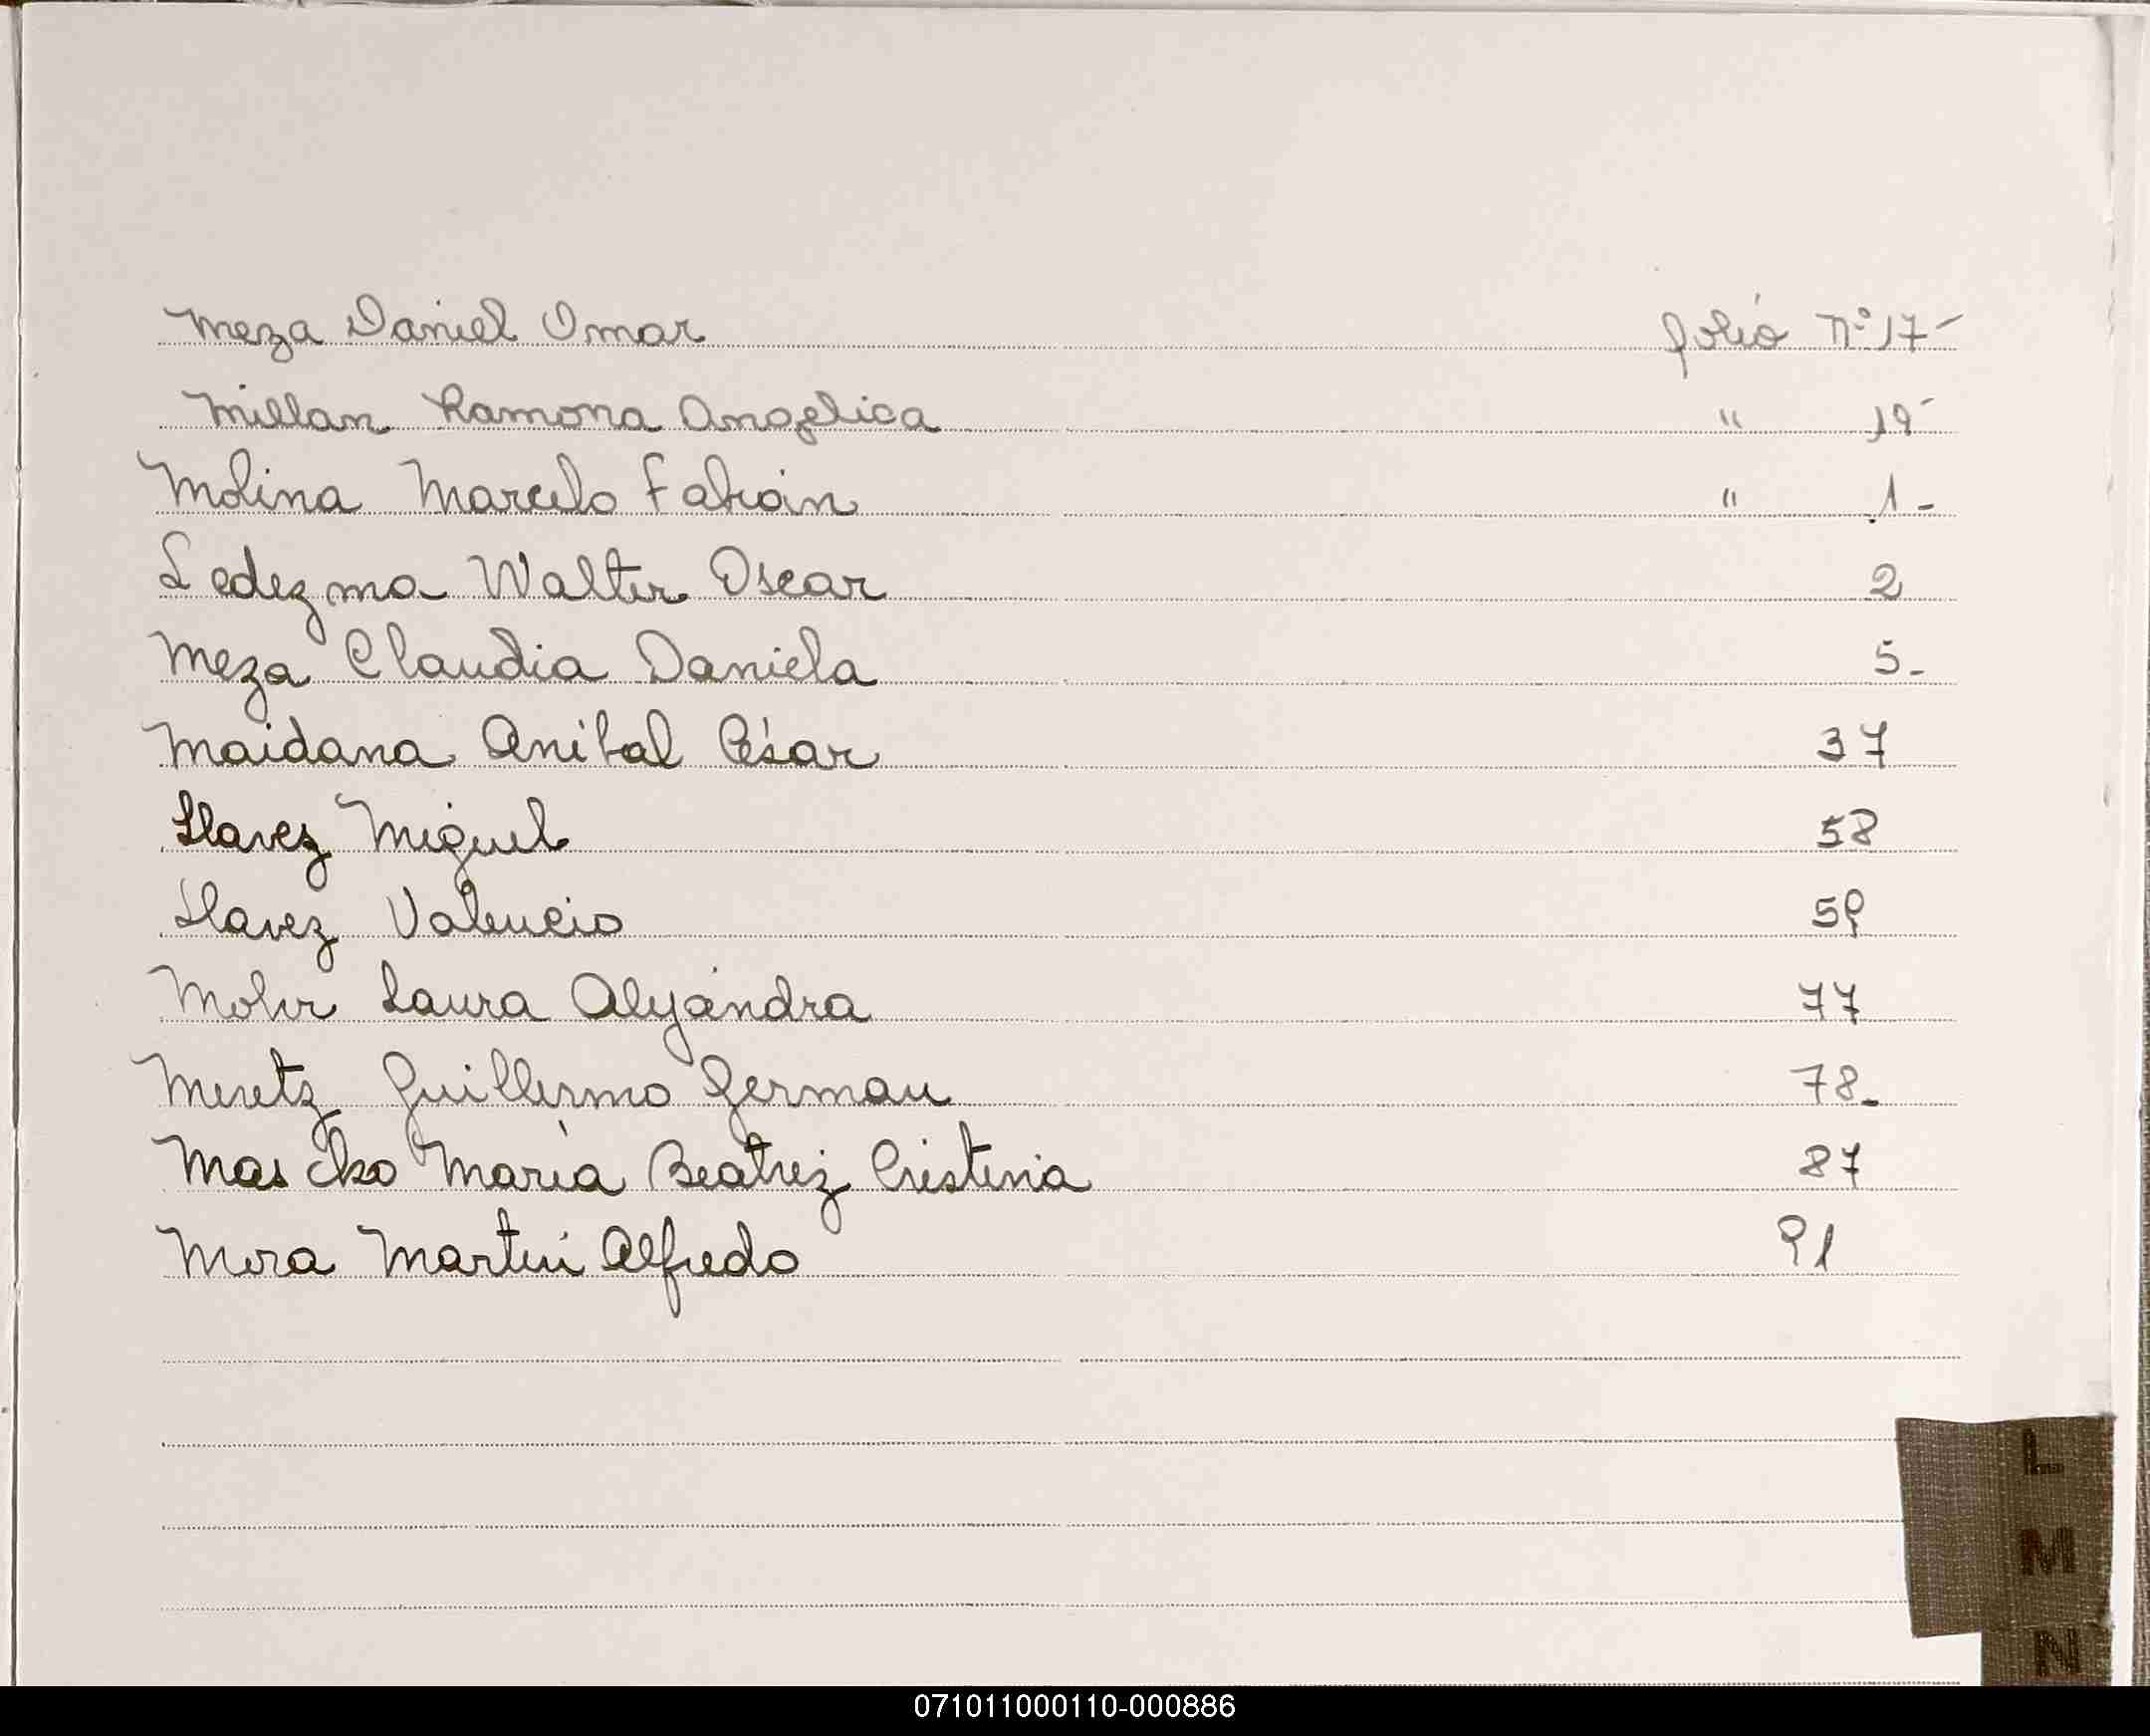 Meza Daniel Omar folio Nº 17-
Millan Ramona Angelica " 19-
Molina Marcelo Fabián " 1-
Ledezma Walter Oscar 2
Meza Claudia Daniela 5-
Maidana Anibal César 37
Llavez Miguel 58
Llavez Valencio 59
Mohr Laura Alejandra 77
Meretz Guillermo German 78-
Mascko María Beatriz Cristina 87
Mora Martin Alfredo 91
L
M
N
071011000110-000886